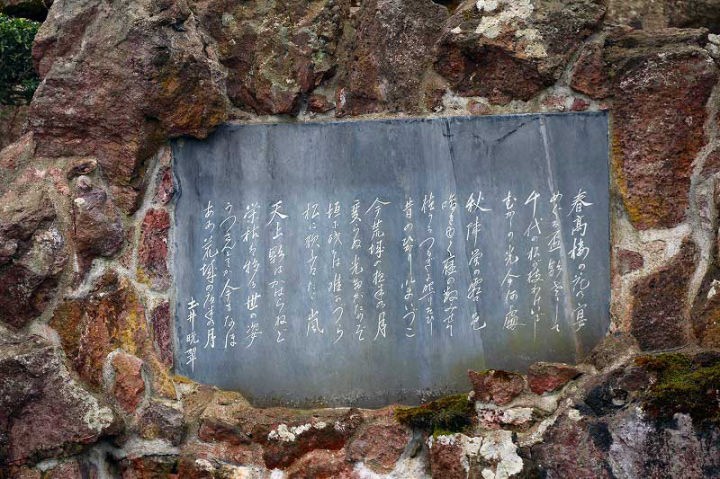 春高樓の花の宴
めぐる盃影さして
千代の松が枝わけいでし
むかしの光今何處
秋陣営の霜の色
鳴き行く雁の数見せて
植うるつるぎに照りそひし
昔の光今いづこ
今荒城の夜半の月
變らぬ光たがためぞ
垣に残るは唯かつら
松に歌ふはただ嵐
天上影はかはらねど
榮枯は移る世の姿
うつさんとてか今もなほ
あゝ荒城の夜半の月
土井晩翠